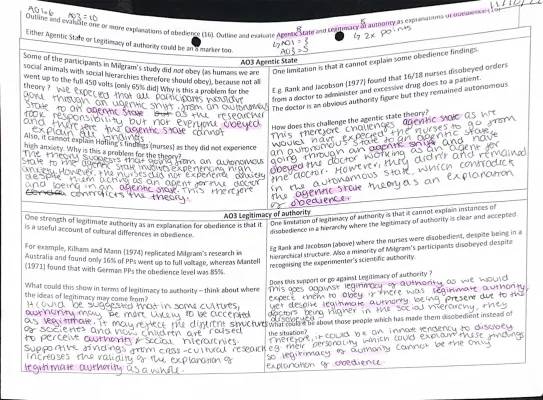 AO1=6 AO3=10
Outline and evaluate one or more explanations of obedience (16). Outline and evaluate Agentic State and Legitimacy of authority as explanations of obedience (16)
Either Agentic State or Legitimacy of authority could be an 8 marker too.
↳ AO1 = 3
AO3 = 5
↳ 2x points
AO3 Agentic State
Some of the participants in Milgram's study did not obey (as humans we are
social animals with social hierarchies therefore should obey), because not all
went up to the full 450 volts (only 65% did) Why is this a problem for the
theory? We expected that all participants would've
gone through an agentic shift, from an autonomous
state to an agentic state as the researcher
took responsibility but not everyone obeyed
and therefore the agentic state cannot
explain all findings
Also, it cannot explain Hofling's findings (nurses) as they did not experience
high anxiety. Why is this a problem for the theory?
The theory suggests that going from an autonomous
state to the agentic state involves experiencing high
anxiety. However, the nurses did not experience anxiety
despite them acting as an agent for the doctor
and being in an agentic state. This therefore
contradicts the theory.
One limitation is that it cannot explain some obedience findings.
E.g. Rank and Jacobson (1977) found that 16/18 nurses disobeyed orders
from a doctor to administer and excessive drug does to a patient.
The doctor is an obvious authority figure but they remained autonomous
How does this challenge the agentic state theory?
This therefore challenges agentic state as we
would have expected the nurses to go from
an autonomous state to an agentic state,
going through an agentic shift and have
obeyed the doctor working as an agent for
the doctor. However, they didn't and remained
in the autonomous state, which contradicts
the agentic state theory as an explanation
of obedience.
AO3 Legitimacy of authority
One strength of legitimate authority as an explanation for obedience is that it
is a useful account of cultural differences in obedience.
For example, Kilham and Mann (1974) replicated Milgram's research in
Australia and found only 16% of PPs went up to full voltage, whereas Mantell
(1971) found that with German PPs the obedience level was 85%.
What could this show in terms of legitimacy to authority – think about where
the ideas of legitimacy may come from?
It could be suggested that in some cultures,
authority may be more likely to be accepted
as legitimate. it may reflect the different structures
of societies and how children are raised
to perceive authority & social hierarchies.
Supportive findings from cross-cultural research
increases the validity of the explanation of
legitimate authority as a whole.
One limitation of legitimacy of authority is that it cannot explain instances of
disobedience in a hierarchy where the legitimacy of authority is clear and accepted
Eg Rank and Jacobson (above) where the nurses were disobedient, despite being in a
hierarchical structure. Also a minority of Milgram's participants disobeyed despite
recognising the experimenter's scientific authority.
Does this support or go against Legitimacy of authority ?
This goes against legitimacy of authority as we would
expect them to obey if there was legitimate authority,
yet despite legitimate authority being present due to the
doctors being higher in the social hierarchy, they
disobeyed
What could it be about those people which has made them disobedient instead of
the situation?
Therefore, it could be an innate tendency to disobey
eg their personality which could explain these findings
so legitimacy of authority cannot be the only
explanation of obedience.